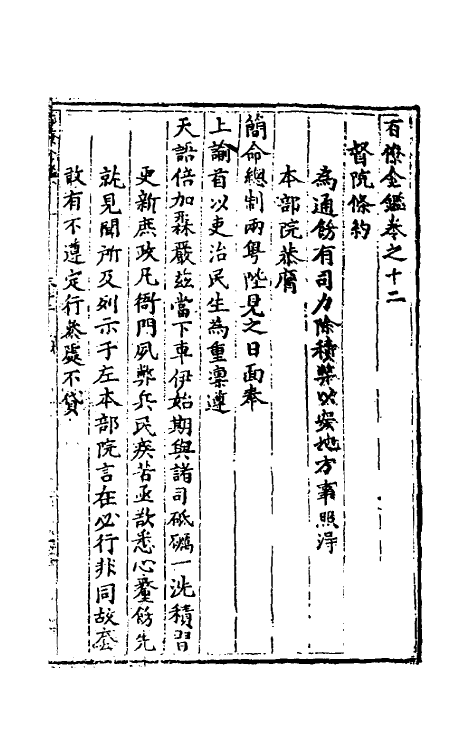 百僚金鑑卷之十二
督院條約
為通飭有司力除積弊以安地方事照淂
本部院恭膺
簡命總制兩粤陛見之日面奉
上諭首以吏治民生為重稟遵
天語倍加森嚴兹當下車伊始期與諸司砥礪一洗積習
更新庶政凡衙門夙弊兵民疾苦亟欲悉心釐飭先
就見聞所及列示于左本部院言在必行非同故套
敢有不遵定行叅處不貸